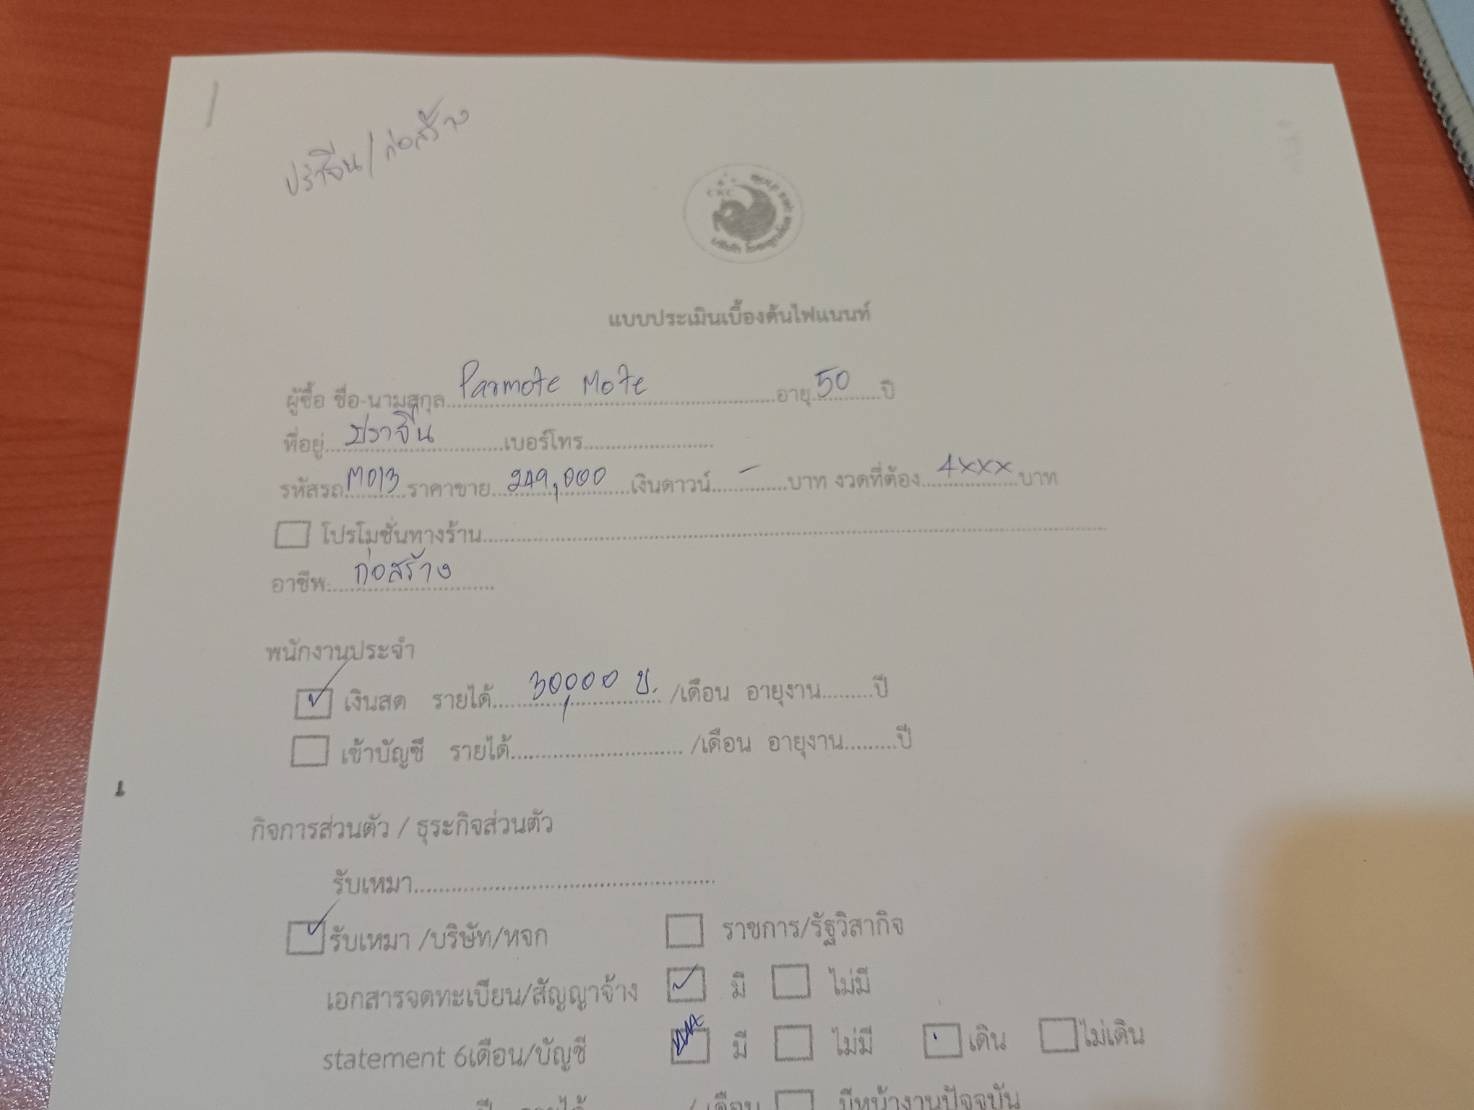 ปราจีน/ก่อสร้าง
แบบประเมินเบื้องต้นไฟแนนท์
ผู้ซื้อ ชื่อ-นามสกุล Parmote Mote อายุ 50 ปี
ที่อยู่ ปราจีน เบอร์โทร
รหัสรถ M013 ราคาขาย 249,000 เงินดาวน์ - บาท งวดที่ต้อง 4xxx บาท
โปรโมชั่นทางร้าน
อาชีพ ก่อสร้าง
พนักงานประจำ
เงินสด รายได้ 30,000 บ. /เดือน อายุงาน ปี
เข้าบัญชี รายได้ /เดือน อายุงาน ปี
กิจการส่วนตัว / ธุระกิจส่วนตัว
รับเหมา
รับเหมา /บริษัท/หจก ราชการ/รัฐวิสากิจ
เอกสารจดทะเบียน/สัญญาจ้าง มี ไม่มี
statement 6เดือน/บัญชี มี ไม่มี เดิน ไม่เดิน
ปี รายได้ /เดือน มีหน้างานปัจจุบัน